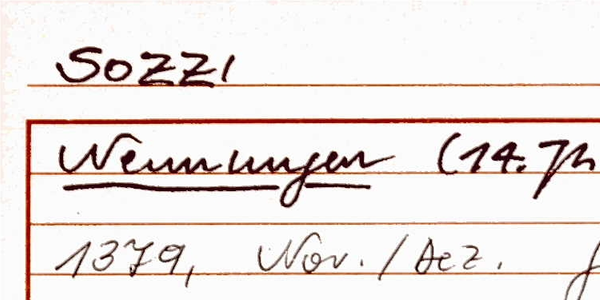 Sozzi
Nennungen (14. Jh
1379, Nov./Dez.